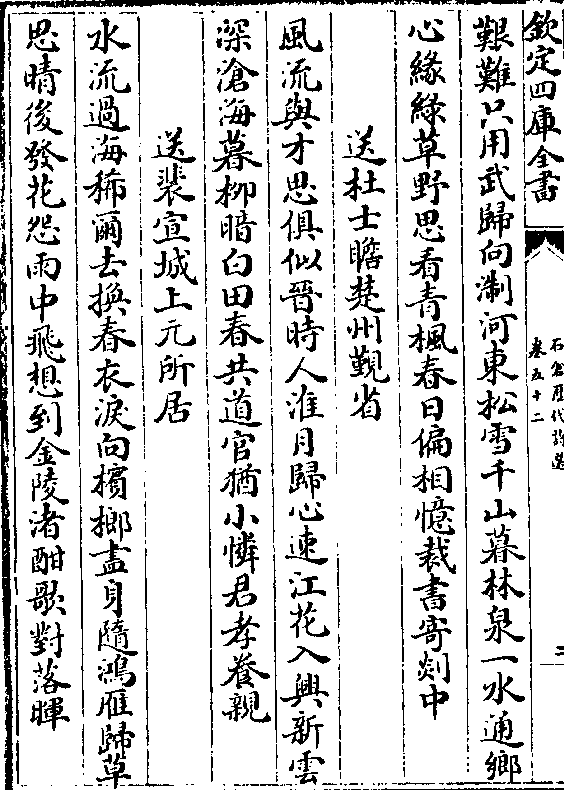 欽定四庫全書
石倉歷代詩選
卷五十二
二
艱難只用武歸向淛河東松雪千山暮林泉一水通鄉
心緣綠草野思看青楓春日偏相憶裁書寄剡中
送杜士瞻楚州覲省
風流與才思俱似晉時人淮月歸心速江花入興新雲
深滄海暮柳暗白田春共道官猶小憐君孝養親
送裴宣城上元所居
水流過海稀爾去換春衣淚向檳榔盡身隨鴻雁歸草
思晴後發花怨雨中飛想到金陵渚酣歌對落暉